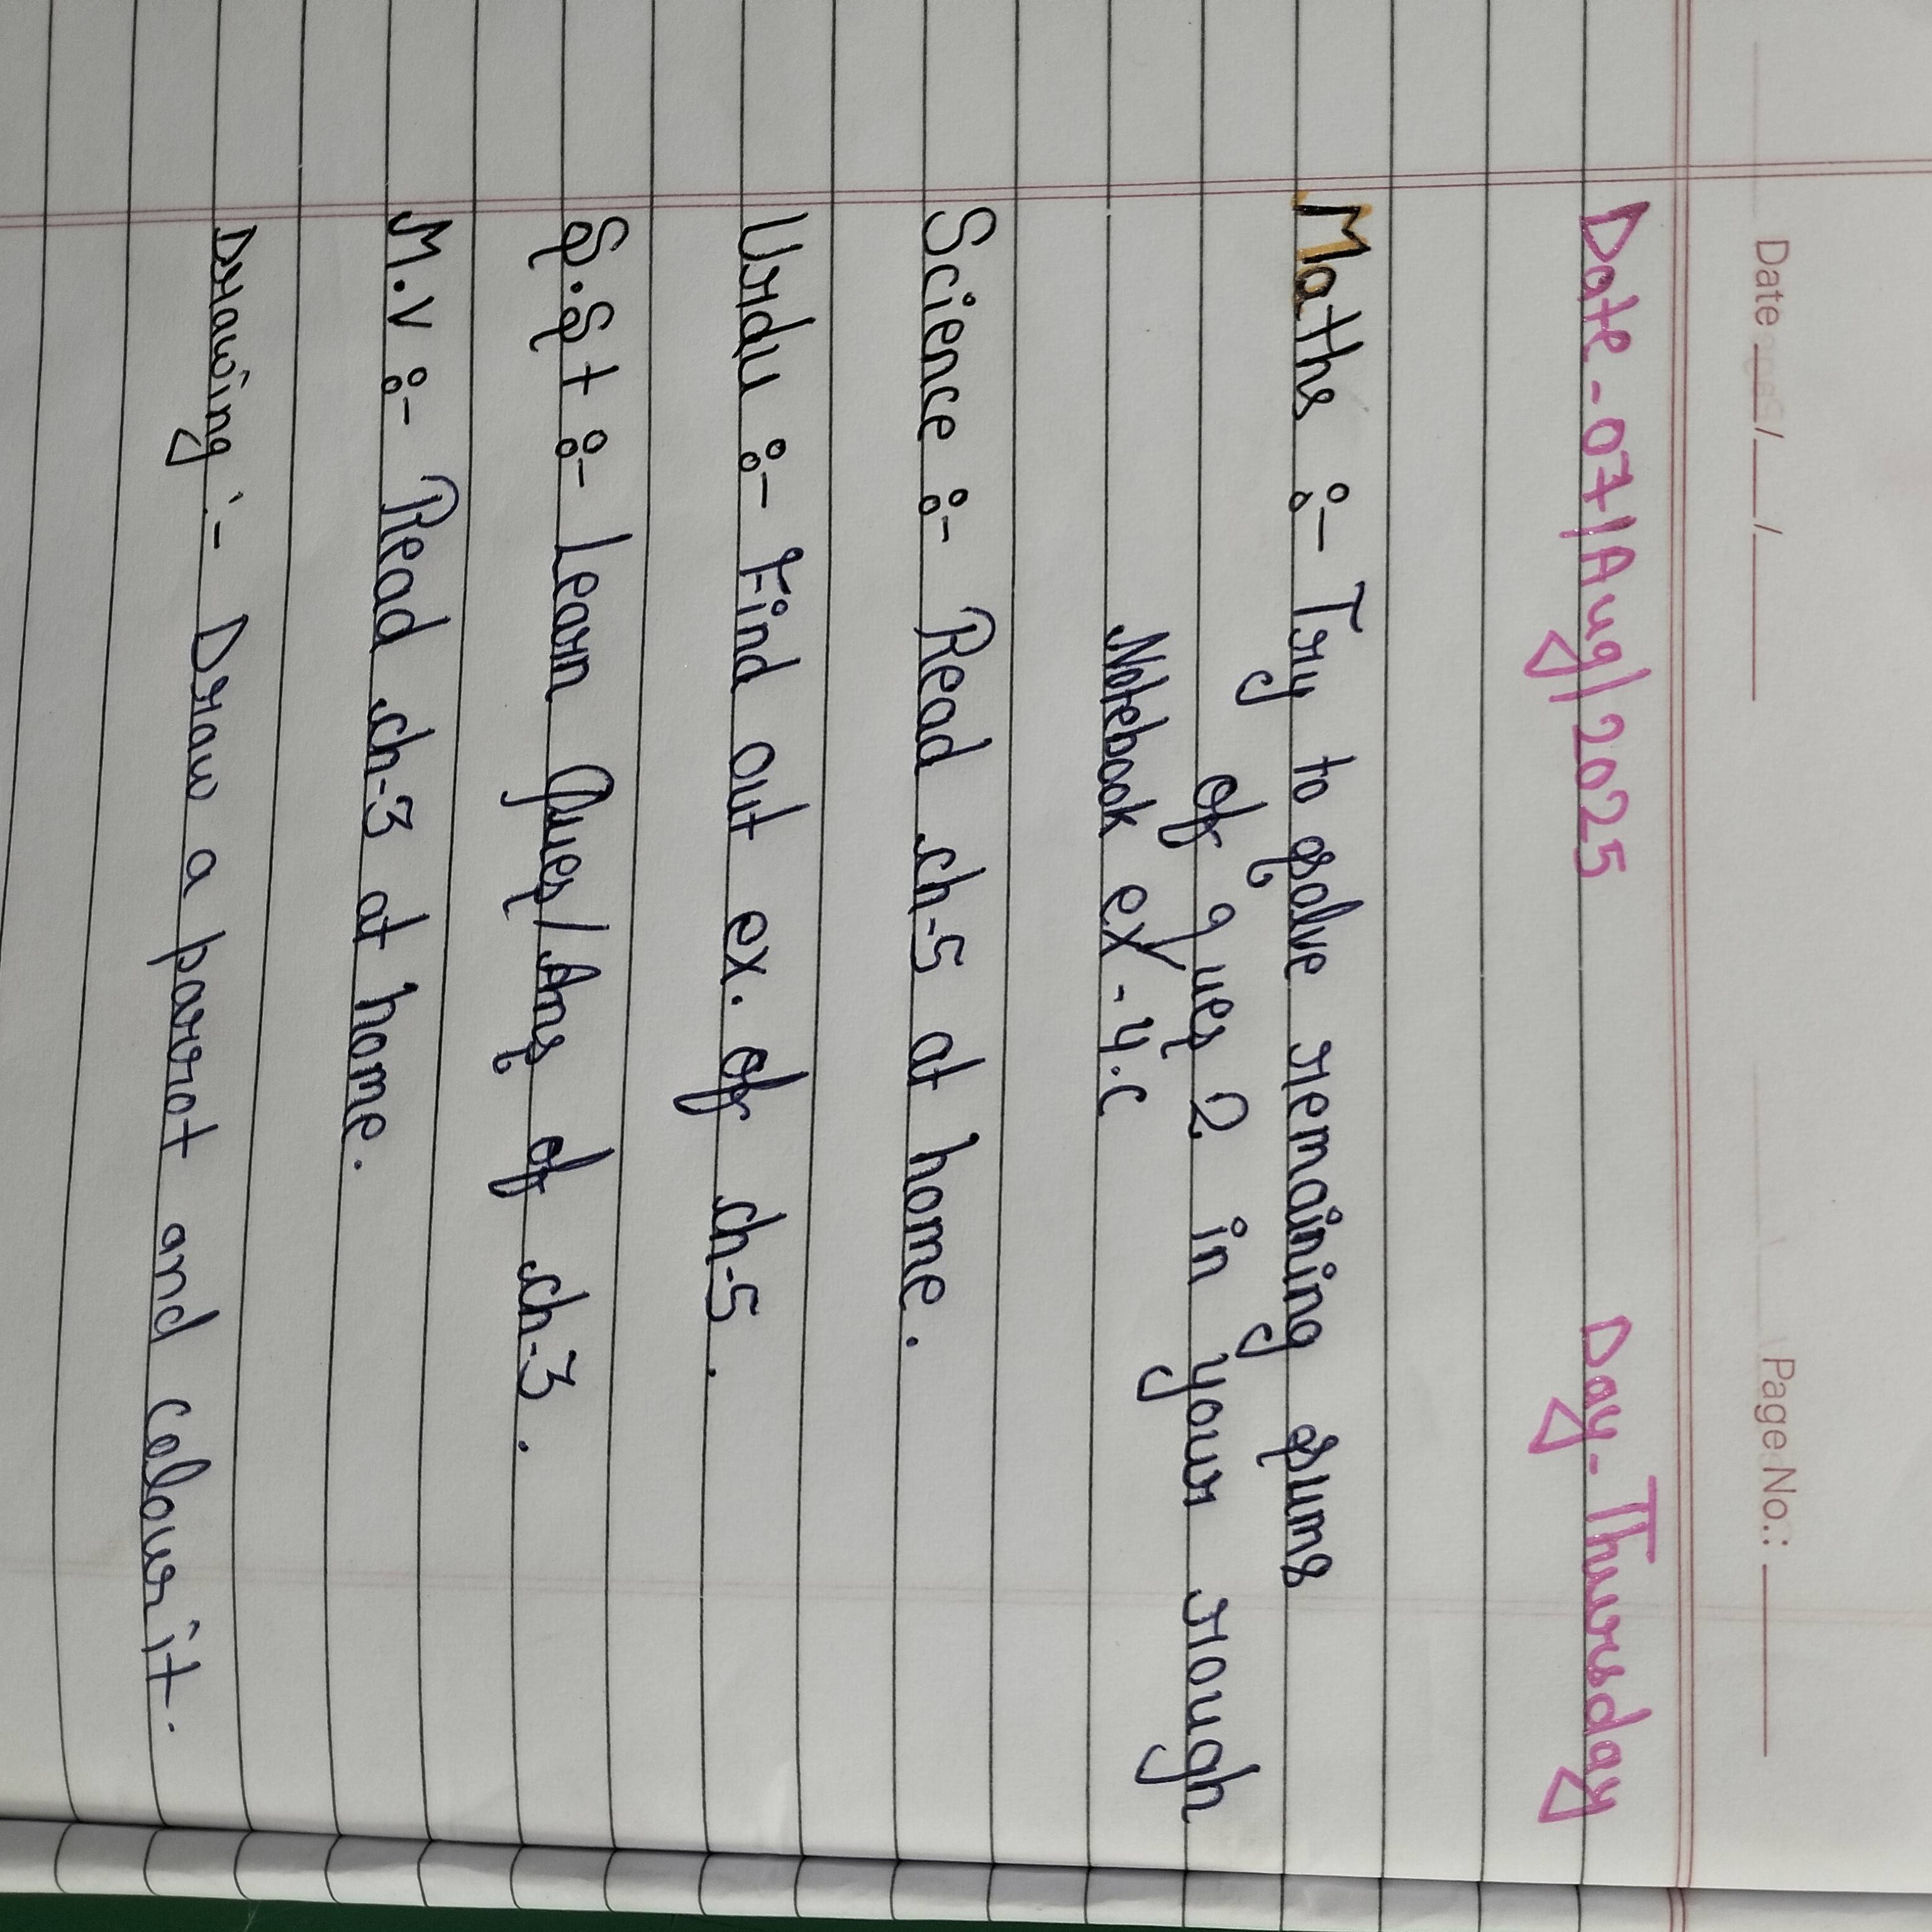 Date __/__/____ Page No.: ____
Date - 07/Aug/2025 Day - Thursday
Maths :- Try to solve remaining sums
of ques 2 in your rough
Notebook ex - 4.c
Science :- Read ch-5 at home.
Urdu :- Find out ex. of ch-5.
S.St :- Learn Ques/Ans of ch-3.
M.V :- Read ch-3 at home.
Drawing :- Draw a parrot and colour it.